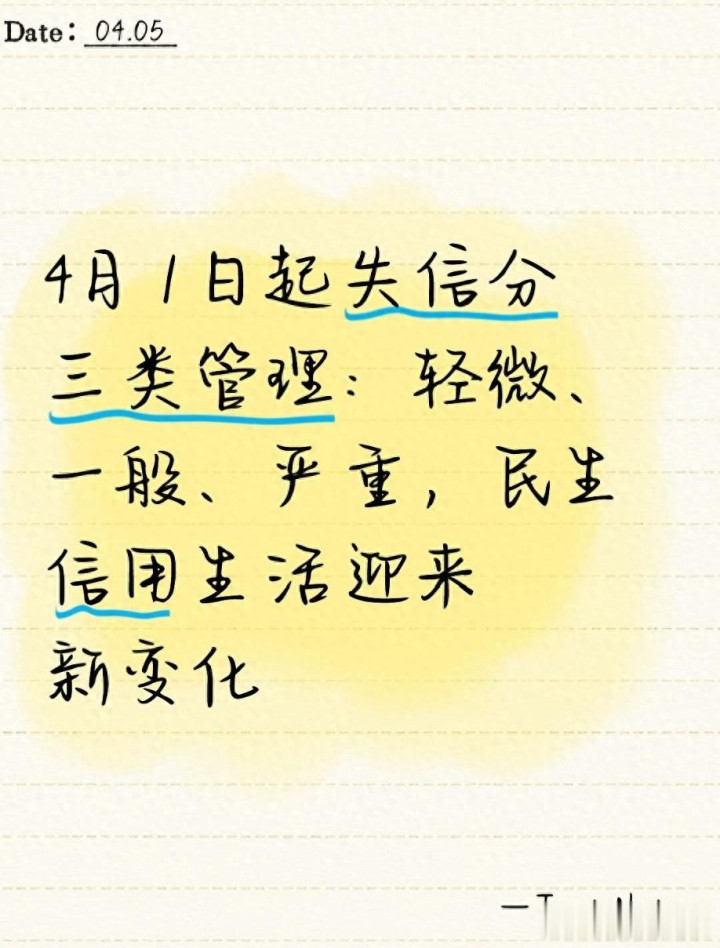 Date: 04.05
4月1日起失信分
三类管理：轻微、
一般、严重，民生
信用生活迎来
新变化